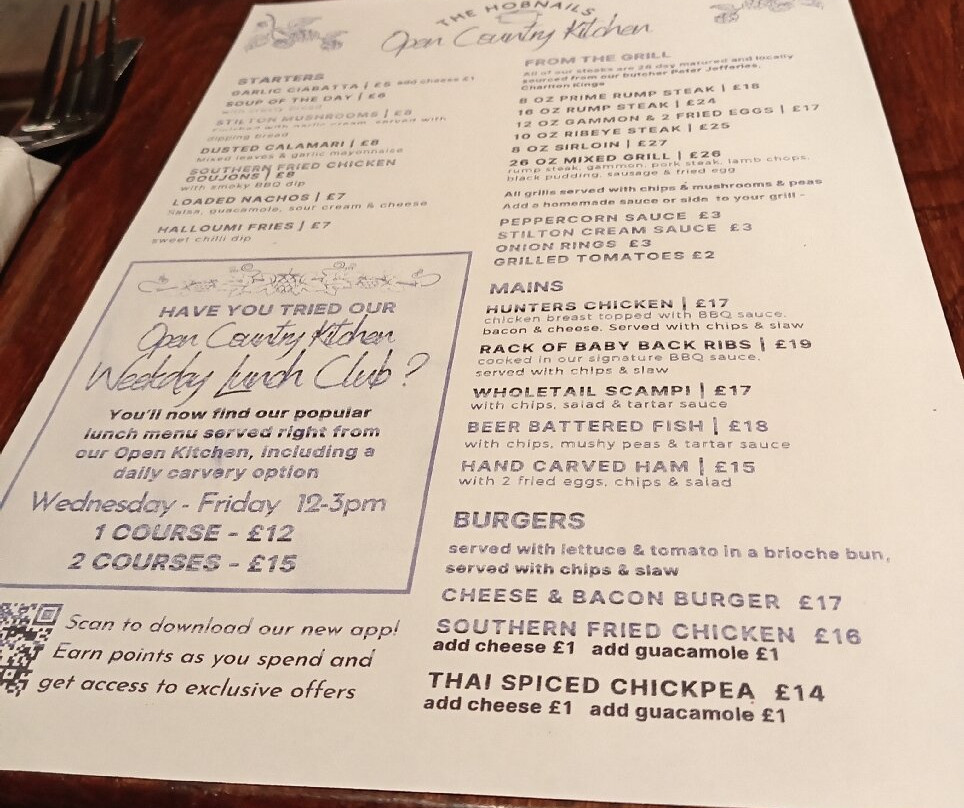 THE HOBNAILS
Open Country Kitchen
STARTERS
GARLIC CIABATTA | £5 add cheese £1
SOUP OF THE DAY | £6
with crusty bread
STILTON MUSHROOMS | £8
Finished with garlic cream, served with
dipping bread
DUSTED CALAMARI | £8
Mixed leaves & garlic mayonnaise
SOUTHERN FRIED CHICKEN
GOUJONS | £8
with smoky BBQ dip
LOADED NACHOS | £7
Salsa, guacamole, sour cream & cheese
HALLOUMI FRIES | £7
sweet chilli dip
HAVE YOU TRIED OUR
Open Country Kitchen
Weekday Lunch Club ?
You'll now find our popular
lunch menu served right from
our Open Kitchen, including a
daily carvery option
Wednesday - Friday 12-3pm
1 COURSE - £12
2 COURSES - £15
Scan to download our new app!
Earn points as you spend and
get access to exclusive offers
FROM THE GRILL
All of our steaks are 28 day matured and locally
sourced from our butcher Peter Jefferies,
Charlton Kings
8 OZ PRIME RUMP STEAK | £18
16 OZ RUMP STEAK | £24
12 OZ GAMMON & 2 FRIED EGGS | £17
10 OZ RIBEYE STEAK | £25
8 OZ SIRLOIN | £27
26 OZ MIXED GRILL | £26
rump steak, gammon, pork steak, lamb chops,
black pudding, sausage & fried egg
All grills served with chips & mushrooms & peas
Add a homemade sauce or side to your grill -
PEPPERCORN SAUCE £3
STILTON CREAM SAUCE £3
ONION RINGS £3
GRILLED TOMATOES £2
MAINS
HUNTERS CHICKEN | £17
chicken breast topped with BBQ sauce,
bacon & cheese. Served with chips & slaw
RACK OF BABY BACK RIBS | £19
cooked in our signature BBQ sauce,
served with chips & slaw
WHOLETAIL SCAMPI | £17
with chips, salad & tartar sauce
BEER BATTERED FISH | £18
with chips, mushy peas & tartar sauce
HAND CARVED HAM | £15
with 2 fried eggs, chips & salad
BURGERS
served with lettuce & tomato in a brioche bun,
served with chips & slaw
CHEESE & BACON BURGER £17
SOUTHERN FRIED CHICKEN £16
add cheese £1 add guacamole £1
THAI SPICED CHICKPEA £14
add cheese £1 add guacamole £1